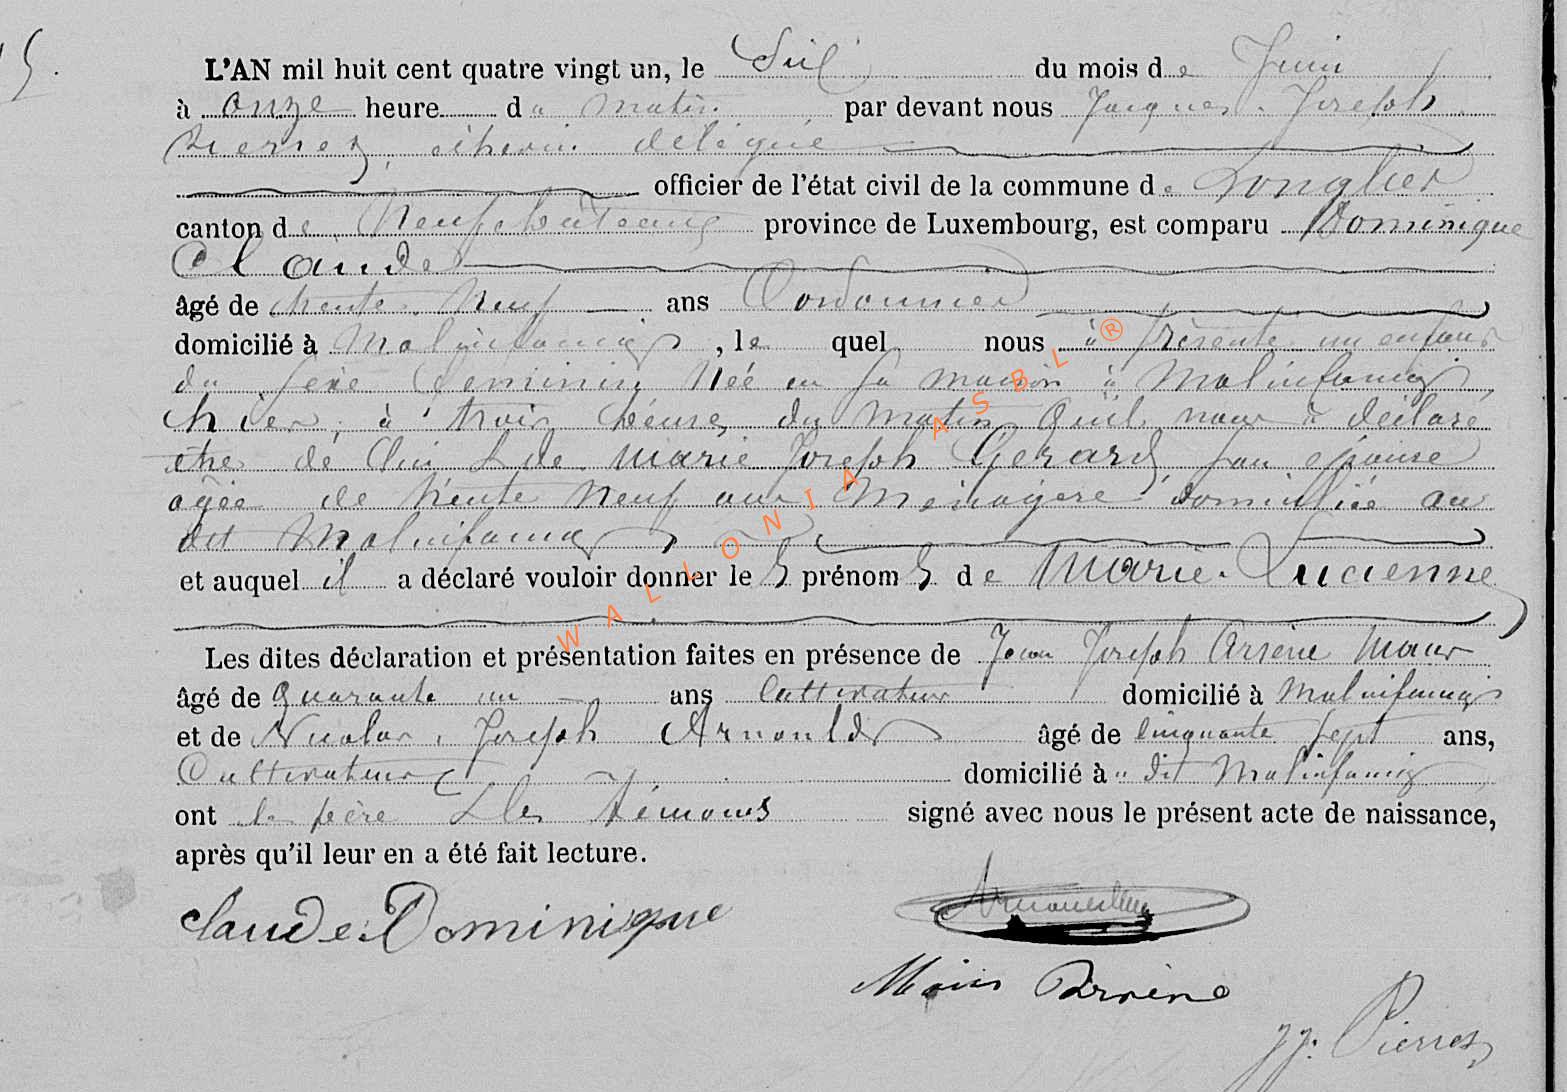 5.
L'AN mil huit cent quatre vingt un, le Six du mois de Juin
à onze heure du matin par devant nous Jacques Joseph
Pierret, échevin délégué
officier de l'état civil de la commune de Longlier
canton de Neufchâteau province de Luxembourg, est comparu Dominique
Claude
âgé de trente neuf ans Cordonnier
domicilié à Molinfaing, le quel nous à présenté un enfant
du sexe feminin Née en sa maison à Molinfaing,
hier, à trois heures du matin qu'il nous à déclaré
être de lui & de Marie Joseph Gerard son épouse
agée de trente neuf ans Ménagère domiciliée au
dit Molinfaing
et auquel il a déclaré vouloir donner les prénoms de Marie Lucienne
Les dites déclaration et présentation faites en présence de Jean Joseph Arsène
âgé de quarante un ans Cultivateur domicilié à Molinfaing
et de Nicolas Joseph Arnould âgé de cinquante sept ans,
Cultivateur domicilié à dit Molinfaing
ont le père & les témoins signé avec nous le présent acte de naissance,
après qu'il leur en a été fait lecture.
Claude Dominique
Arsène
JJ. Pierret
WALLONIA ASBL®